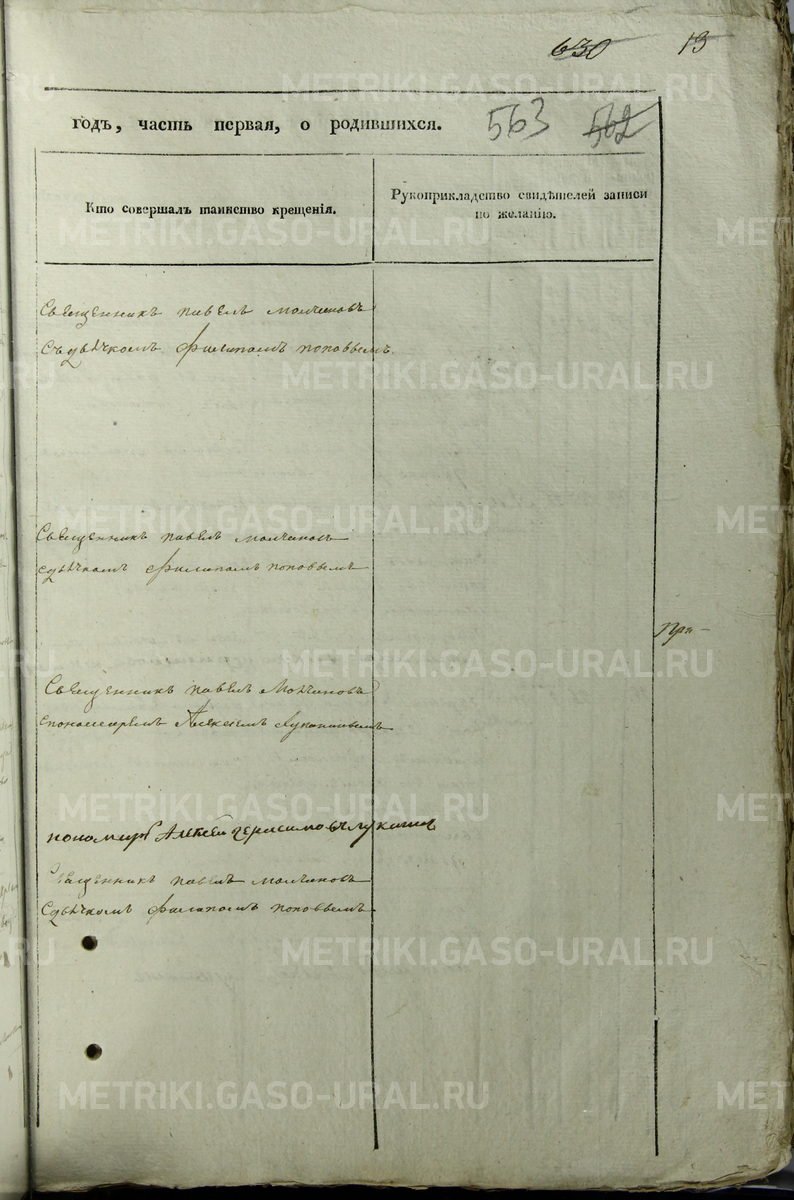 630 13
годъ, часть первая, о родившихся. 563 562
Кто совершалъ таинство крещенія.
Рукоприкладство свидѣтелей записи
по желанію.
Священникъ павелъ молчановъ
Съ дьячкомъ филипомъ поповымъ
Священникъ павелъ молчановъ
с дьячкомъ филипомъ поповымъ
При-
Священникъ павелъ Молчановъ
с пономаремъ Алексеемъ Лукинымъ
пономарь герасимовъ лукинъ
Священникъ павелъ молчановъ
С дьячкомъ филипомъ поповымъ
METRIKI.GASO-URAL.RU